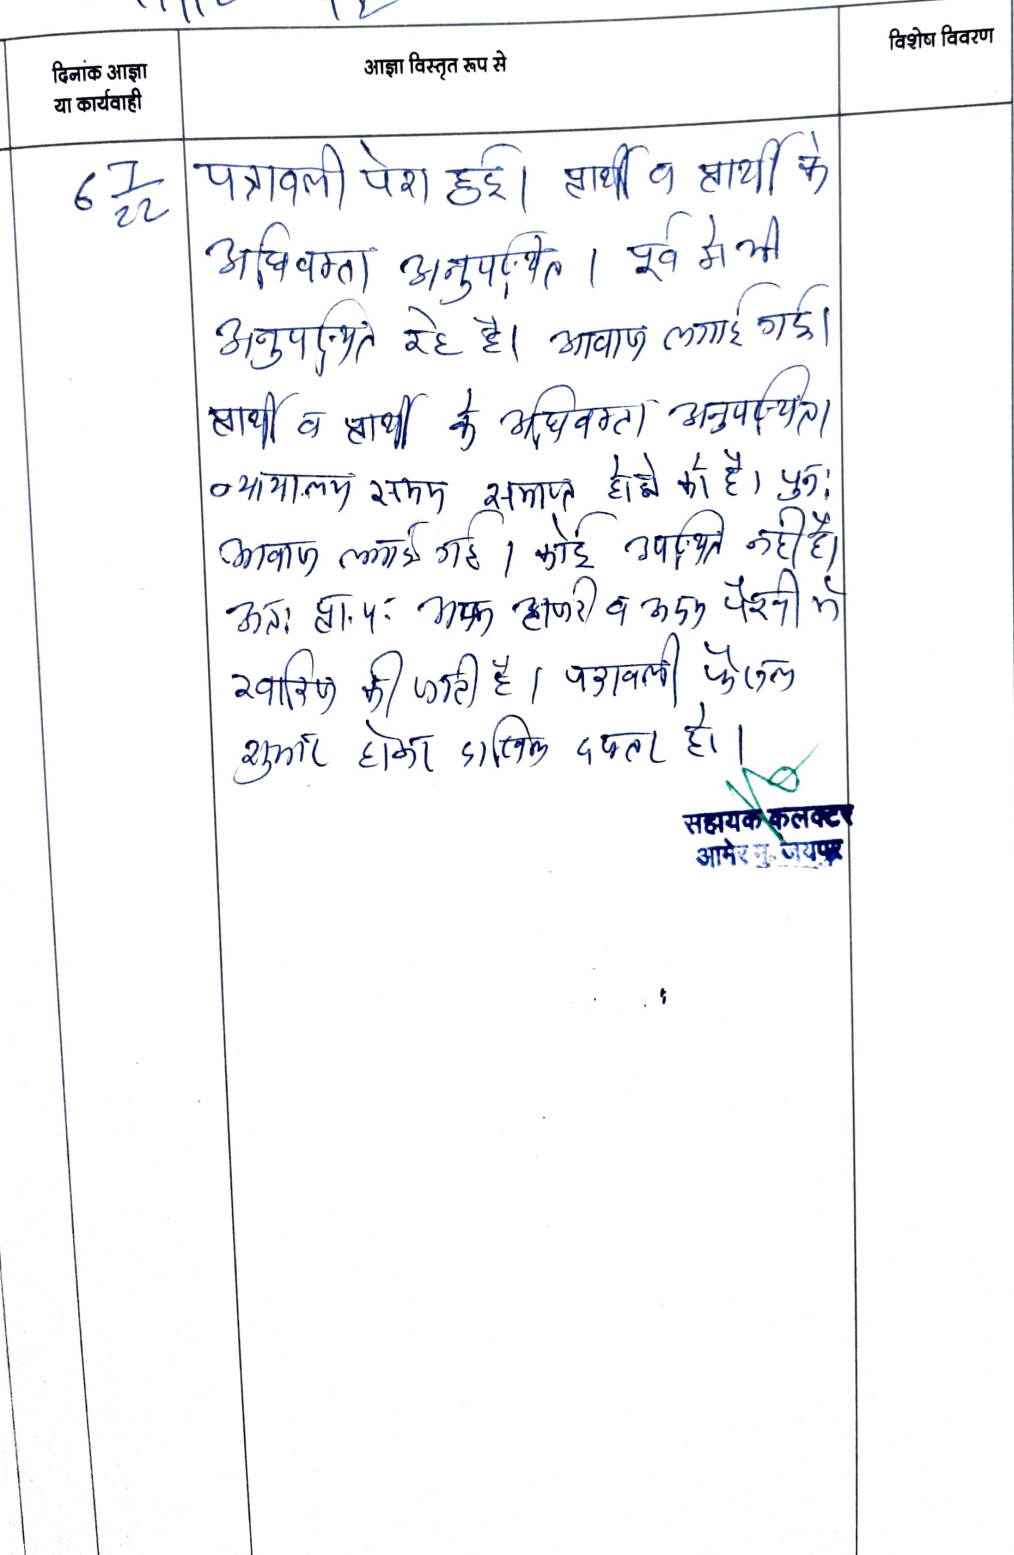 दिनांक आज्ञा
या कार्यवाही
आज्ञा विस्तृत रूप से
विशेष विवरण
6 7/22
पत्रावली पेश हुई। प्रार्थी व प्रार्थी के
अधिवक्ता अनुपस्थित। पूर्व में भी
अनुपस्थित रहे है। आवाज लगाई गई।
प्रार्थी व प्रार्थी के अधिवक्ता अनुपस्थित।
न्यायालय समय समाप्त होने को है। पुनः
आवाज लगाई गई। कोई उपस्थित नहीं है।
अतः प्रा.प. अदम हाजरी व अदम पैरवी में
खारिज की जाती है। पत्रावली फैसल
शुमार होकर दाखिल दफ्तर हो।
सहायक कलक्टर
आमेर मु. जयपुर